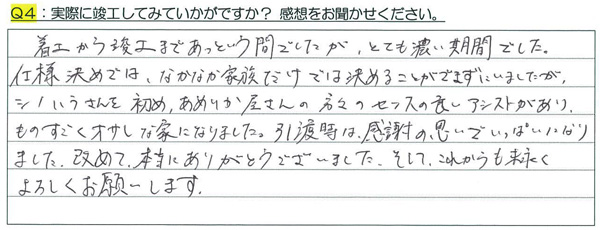 Q4：実際に竣工してみていかがですか？ 感想をお聞かせください。
着工から竣工まであっという間でしたが、とても濃い期間でした。
仕様決めでは、なかなか家族だけでは決めることができずにいましたが、
さんを初め、あめりか屋さんの方々のセンスの良いアシストがあり、
ものすごくオサレな家になりました。引渡時は、感謝の思いでいっぱいになり
ました。改めて、本当にありがとうございました。そして、これからも末永く
よろしくお願いします。